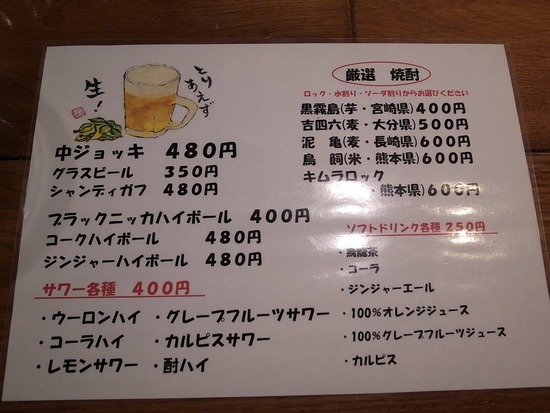 とりあえず
生!
中ジョッキ 480円
グラスビール 350円
シャンディガフ 480円
ブラックニッカハイボール 400円
コークハイボール 480円
ジンジャーハイボール 480円
サワー各種 400円
・ウーロンハイ ・グレープフルーツサワー
・コーラハイ ・カルピスサワー
・レモンサワー ・酎ハイ
厳選 焼酎
ロック・水割り・ソーダ割りからお選びください
黒霧島(芋・宮崎県)400円
吉四六(麦・大分県)500円
泥 亀(麦・長崎県)600円
鳥 飼(米・熊本県)600円
キムラロック
・熊本県)600円
ソフトドリンク各種 250円
・烏龍茶
・コーラ
・ジンジャーエール
・100%オレンジジュース
・100%グレープフルーツジュース
・カルピス